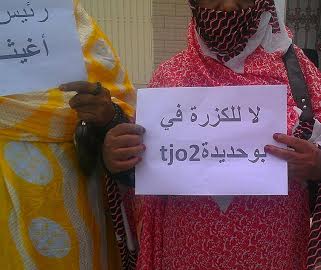 رئيس
أغيثـ
لا للكزرة في
بوحديدةtjo2